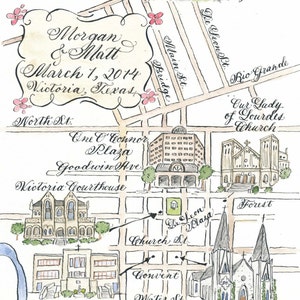 Morgan
& Matt
March 1, 2014
Victoria, Texas
De Leon St.
Main St.
Bridge
Rio Grande
North St.
Our Lady
of Lourdes
Church
O'Connor
Plaza
Goodwin Ave
Victoria Courthouse
De Leon
Plaza
Forest
Church St.
Convent
Water St.